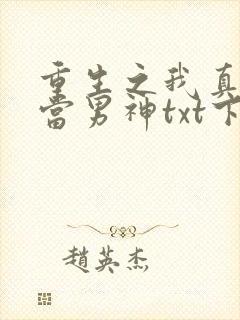 重生之我真
当男神txt下
赵英杰